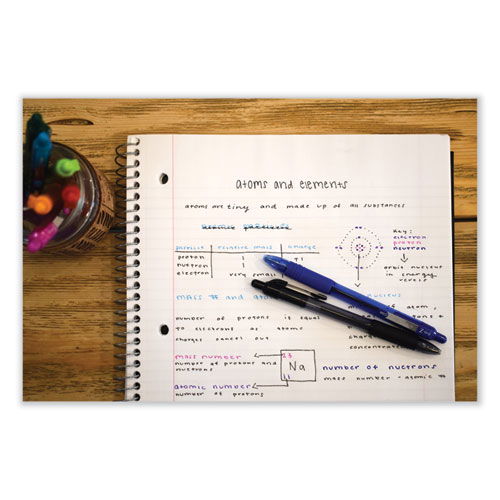 atoms and elements
atoms are tiny and made up of all substances
particle relative mass charge
proton 1 +1
neutron 1
electron very small
Key:
electron
proton
neutron
orbit nucleus
in energy
levels
mass # and nucleus
number of protons is equal
to electrons so atomic
charges cancel out
of atom,
charge
concentrated
mass number
number of protons and
neutrons
23
Na
11
number of neutrons
mass number - atomic #
atomic number
number of protons